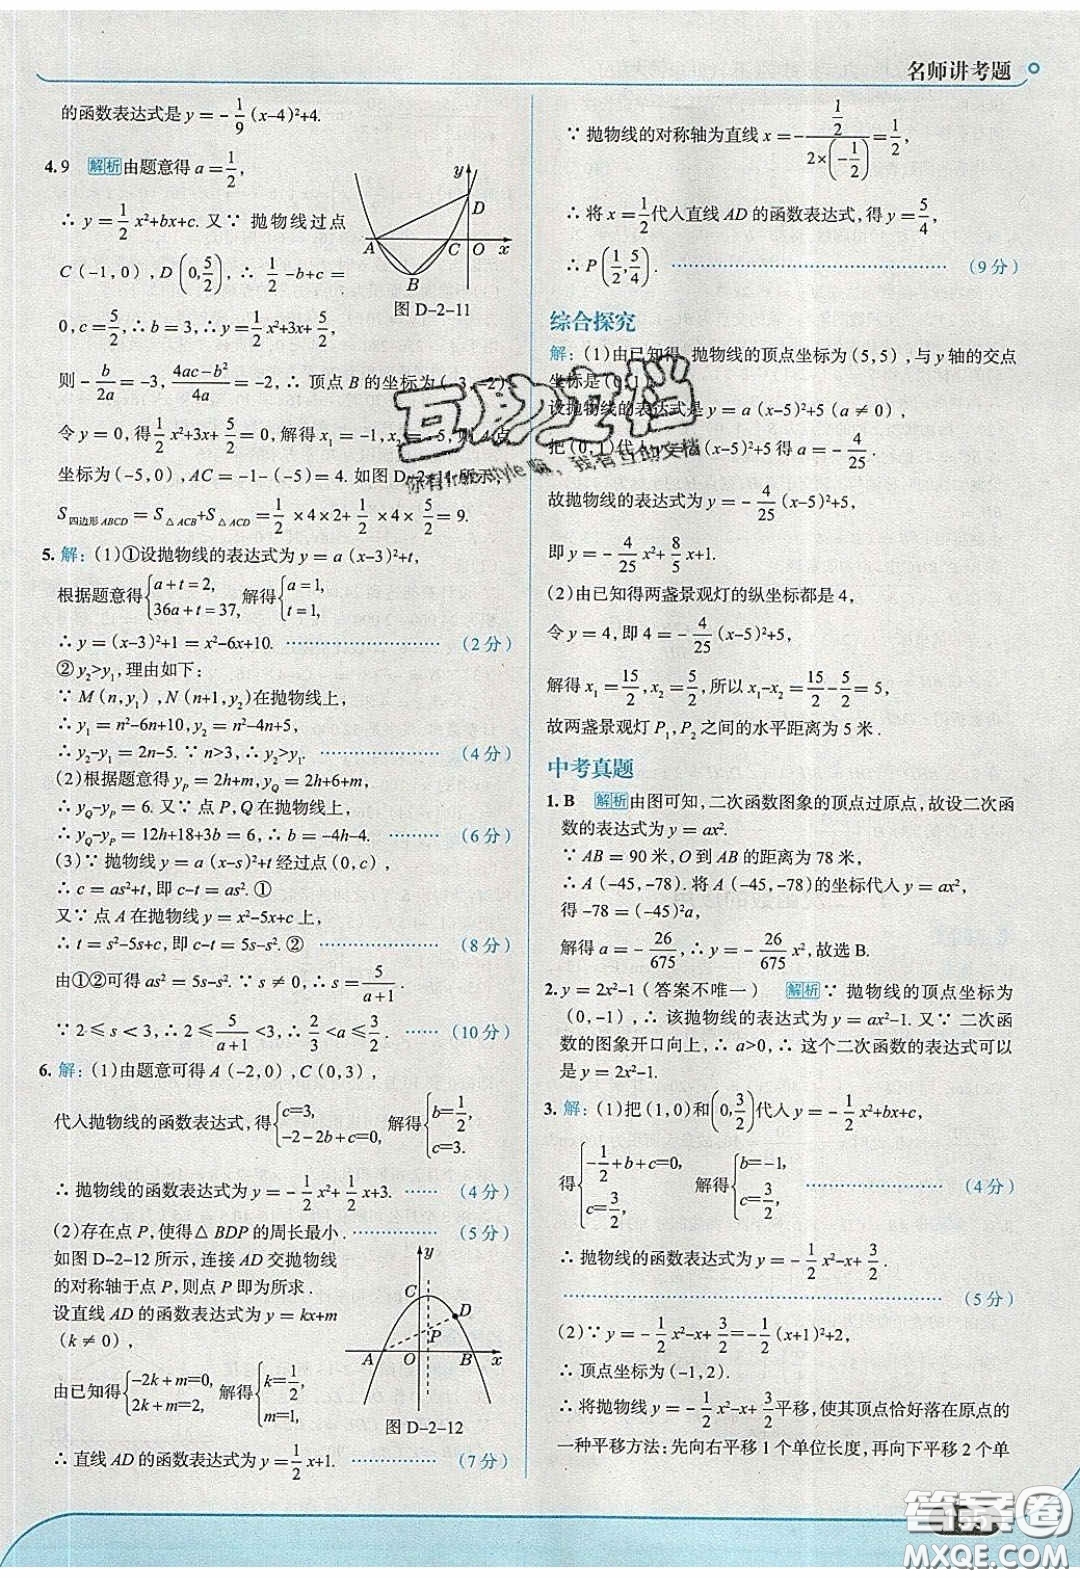 名师讲考题
的函数表达式是 y = -1/9 (x-4)²+4.
4. 9 解析 由题意得 a = 1/2,
∴ y = 1/2 x²+bx+c. 又∵ 抛物线过点
C (-1, 0), D (0, 5/2), ∴ 1/2 -b+c =
0, c = 5/2, ∴ b = 3, ∴ y = 1/2 x²+3x+ 5/2,
则 - b/2a = -3, (4ac-b²)/4a = -2, ∴ 顶点 B 的坐标为 (-3, -2)
令 y = 0, 得 1/2 x²+3x+ 5/2 = 0, 解得 x₁ = -1, x₂ = -5, 则 A 点
坐标为 (-5, 0), AC = -1- (-5) = 4. 如图 D-2-11 所示,
S四边形ABCD = S△ACB+S△ACD = 1/2 ×4×2+ 1/2 ×4× 5/2 = 9.
y
D
A
C
O
x
B
图 D-2-11
5. 解: (1)①设抛物线的表达式为 y = a (x-3)²+t,
根据题意得{a+t = 2, 36a+t = 37, 解得{a = 1, t = 1,
∴ y = (x-3)²+1 = x²-6x+10. ……………… (2 分)
② y₂>y₁, 理由如下:
∵ M (n, y₁), N (n+1, y₂)在抛物线上,
∴ y₁ = n²-6n+10, y₂ = n²-4n+5,
∴ y₂-y₁ = 2n-5. ∵ n>3, ∴ y₂>y₁. ……………… (4 分)
(2)根据题意得 yP = 2h+m, yQ = 2h+6+m,
∴ yQ-yP = 6. 又∵ 点 P, Q 在抛物线上,
∴ yQ-yP = 12h+18+3b = 6, ∴ b = -4h-4. ……… (6 分)
(3)∵ 抛物线 y = a (x-s)²+t 经过点 (0, c),
∴ c = as²+t, 即 c-t = as². ①
又∵ 点 A 在抛物线 y = x²-5x+c 上,
∴ t = s²-5s+c, 即 c-t = 5s-s². ② ……………… (8 分)
由①②可得 as² = 5s-s². ∵ s ≠ 0, ∴ s = 5/(a+1).
∵ 2 ≤ s < 3, ∴ 2 ≤ 5/(a+1) <3, ∴ 2/3 <a≤ 3/2. …… (10 分)
6. 解: (1)由题意可得 A (-2, 0), C (0, 3),
代入抛物线的函数表达式, 得{c=3, -2-2b+c=0, 解得{b= 1/2, c=3.
∴ 抛物线的函数表达式为 y = - 1/2 x²+ 1/2 x+3. …… (4 分)
(2)存在点 P, 使得△ BDP 的周长最小. ………… (5 分)
如图 D-2-12 所示, 连接 AD 交抛物线
的对称轴于点 P, 则点 P 即为所求.
设直线 AD 的函数表达式为 y = kx+m
(k ≠ 0),
由已知得{-2k+m=0, 2k+m=2, 解得{k= 1/2, m=1,
∴ 直线 AD 的函数表达式为 y= 1/2 x+1. ………… (7 分)
y
C
D
P
A
O
B
x
图 D-2-12
∵ 抛物线的对称轴为直线 x = - (1/2)/(2×(-1/2)) = 1/2,
∴ 将 x = 1/2 代入直线 AD 的函数表达式, 得 y = 5/4,
∴ P(1/2, 5/4). ……………………………… (9 分)
综合探究
解: (1)由已知得, 抛物线的顶点坐标为 (5, 5), 与 y 轴的交点
坐标是 (0, 1).
设抛物线的表达式是 y = a (x-5)²+5 (a ≠ 0),
把 (0, 1)代入 y = a (x-5)²+5 得 a = - 4/25.
故抛物线的表达式为 y = - 4/25 (x-5)²+5,
即 y = - 4/25 x²+ 8/5 x+1.
(2)由已知得两盏景观灯的纵坐标都是 4,
令 y = 4, 即 4 = - 4/25 (x-5)²+5,
解得 x₁ = 15/2, x₂ = 5/2, 所以 x₁-x₂ = 15/2 - 5/2 = 5,
故两盏景观灯 P₁, P₂ 之间的水平距离为 5 米.
中考真题
1. B 解析 由图可知, 二次函数图象的顶点过原点, 故设二次函
数的表达式为 y = ax².
∵ AB = 90 米, O 到 AB 的距离为 78 米,
∴ A (-45, -78). 将 A (-45, -78)的坐标代入 y = ax²,
得 -78 = (-45)²a,
解得 a = - 26/675, ∴ y = - 26/675 x², 故选 B.
2. y = 2x²-1 (答案不唯一) 解析 ∵ 抛物线的顶点坐标为
(0, -1), ∴ 该抛物线的表达式为 y = ax²-1. 又∵ 二次函
数的图象开口向上, ∴ a>0, ∴ 这个二次函数的表达式可以
是 y = 2x²-1.
3. 解: (1)把 (1, 0)和(0, 3/2)代入 y = - 1/2 x²+bx+c,
得{- 1/2 +b+c=0, c= 3/2, 解得{b=-1, c= 3/2, ……………… (4 分)
∴ 抛物线的函数表达式为 y = - 1/2 x²-x+ 3/2.
……………………………………………… (5 分)
(2)∵ y = - 1/2 x²-x+ 3/2 = - 1/2 (x+1)²+2,
∴ 顶点坐标为 (-1, 2).
∴ 将抛物线 y = - 1/2 x²-x+ 3/2 平移, 使其顶点恰好落在原点的
一种平移方法: 先向右平移 1 个单位长度, 再向下平移 2 个单
互助文档
答案圈
MXQE.COM